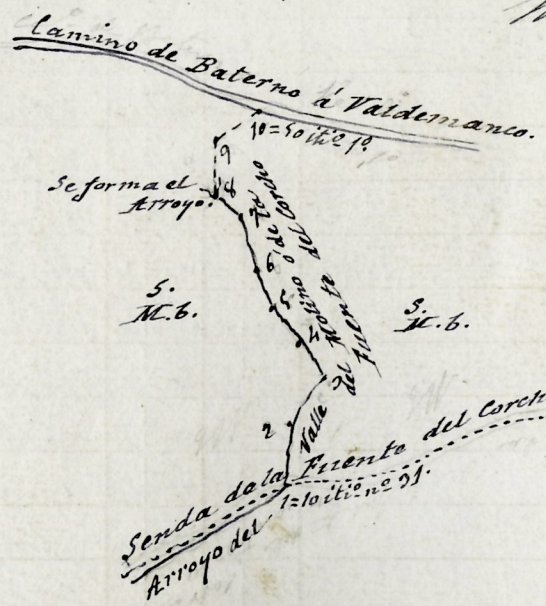 Camino de Baterno á Valdemanco.
10=50 itiº 1º
9
8
Se forma el
Arroyo.
6
5
Valle del Molino ó de la
Fuente del Corcho
S.
M.b.
S.
M.b.
2
Senda de la Fuente del Corch
Arroyo del
1=10 itiº nº 31.